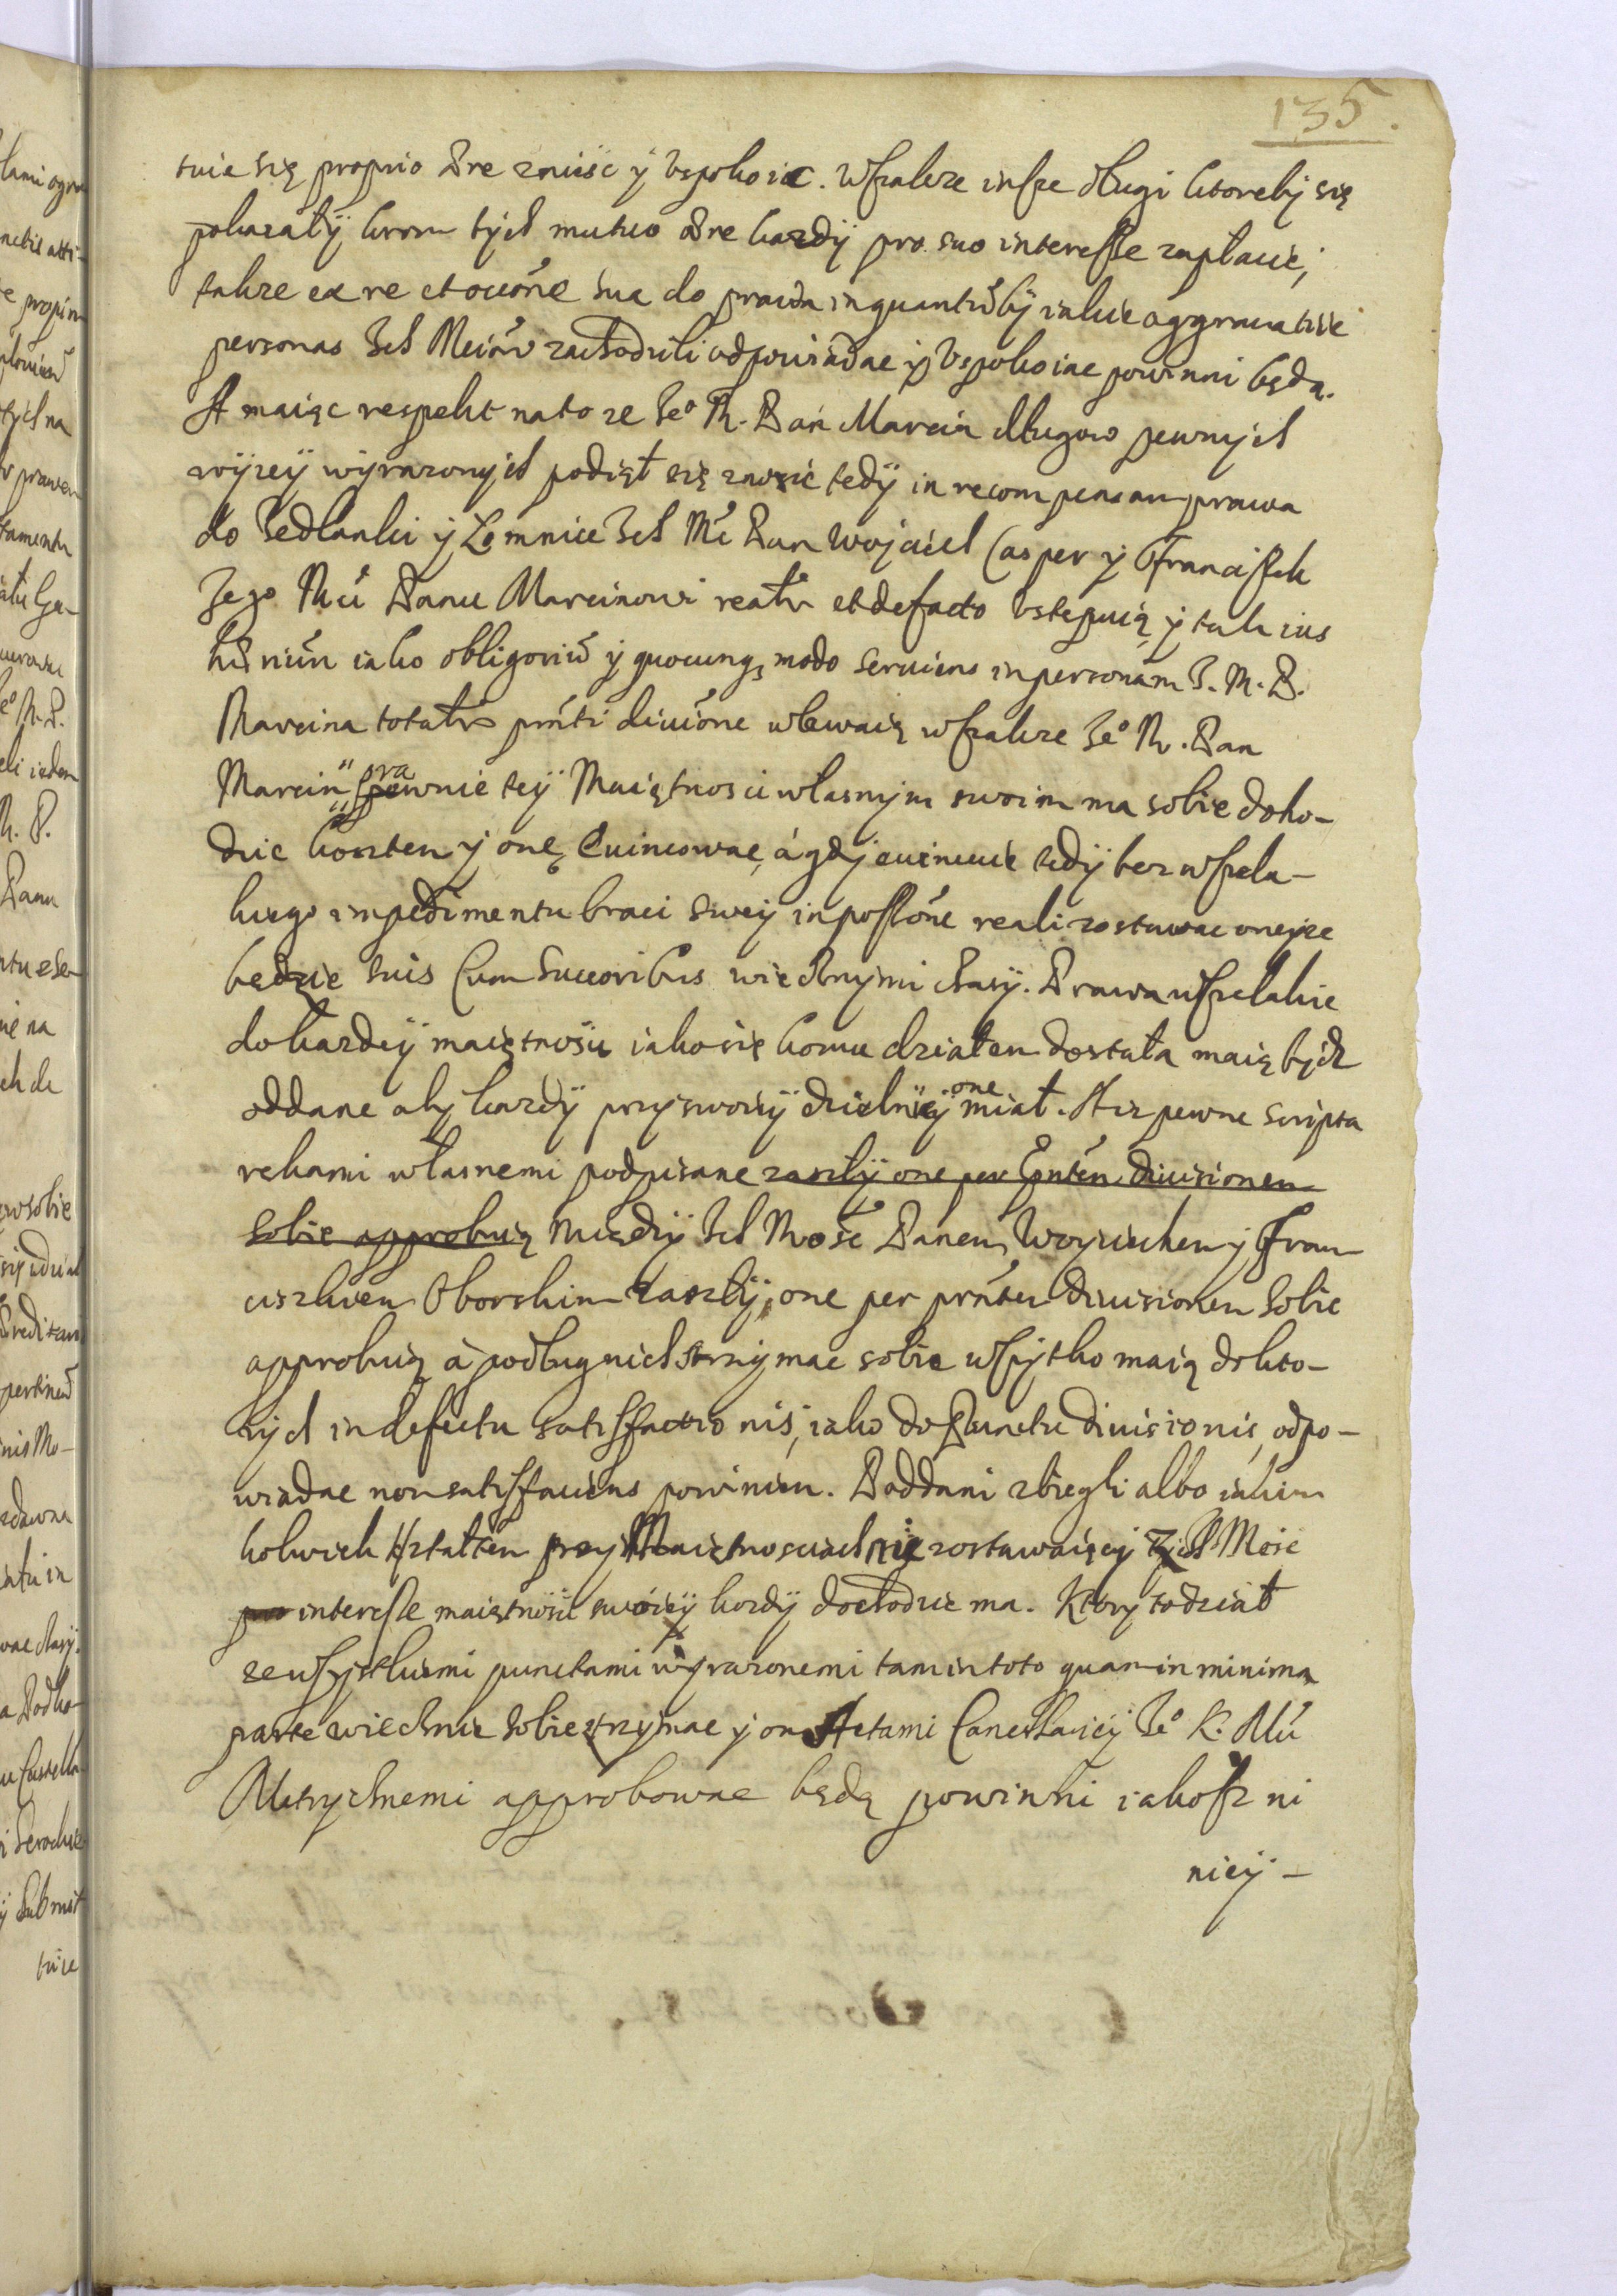 135.
tuie się proprio Ære znięść ÿ Vspokoic. Wszakze insze długi ktoreby się
pokazałÿ krom tych mutuo Ære kazdÿ pro suo interesse zapłacic,
takze ex re et occóne sua do prawa inquantu͠ bÿ iakie aggrauatiie
personas Ich Mciów zachodzili odpowiadac ÿ Vspokoiac powinni będą.
A maiąc respekt na to ze Je° M. Pan Marcin długow pewnych
wÿzeÿ wÿrazonych podiął się znosic tedÿ in recompensam prawa
do Jedlanki ÿ Łomnice Ich Mć Pan Woÿciech Casper ÿ Franciszek
Jego Mći Panu Marcinowi realr et de facto Vstępuią ÿ tak ius
iako obligoriu͠ ÿ quocunq3 modo seruiens in personam J. M. P.
Marcina totalr pńti diuióne wlewaią wszakze Je° M. Pan
Marcin prawnie teÿ Maiętnosci własnym swoim ma sobie docho-
dzic kosztem ÿ onę Euincowac, á gdÿ euincuie tedÿ bez wszela-
kiego impedimentu braci sweÿ in possóne reali zostawac oneÿze
będzie suis Cum Succoribus wiecznymi czasÿ. Prawa wszelakie
do kazdeÿ maiętnosci iako się komu działem dostała maią bydz
oddane abÿ kazdÿ przÿ swoieÿ dzielnicÿ one miał. A iz pewne scripta
rekami własnemi podpisane zaszłÿ one per pńtem diuisionem
sobie approbuią Międzÿ Ich Mość Panem Woyciechem ÿ Fran
ciszkiem Oborskim zaszłÿ, one per prńtem diuisionem sobie
approbuią á podług nich strzymac sobie wszÿtko maią do kto-
rych in defectu satisfactionis, iako do Punctu diuisionis, odpo-
wiadac non satisfaciens powinien. Poddani zbiegli albo iakim
kolwiek ksztaltem przÿ Maiętnosciach nie zostawaiącÿ Ich Mosc
pro interesse maiętnosci swoieÿ kazdÿ dochodzic ma. Ktory to dział
ze wszÿtkiemi punctami wÿrazonemi tam in toto quam in minima
parte wiecznie sobie strzymac ÿ on Actami Cancellariéÿ Je° K. Mći
Metrycznemi approbowac będą powinni iakosz ni
nieÿ -